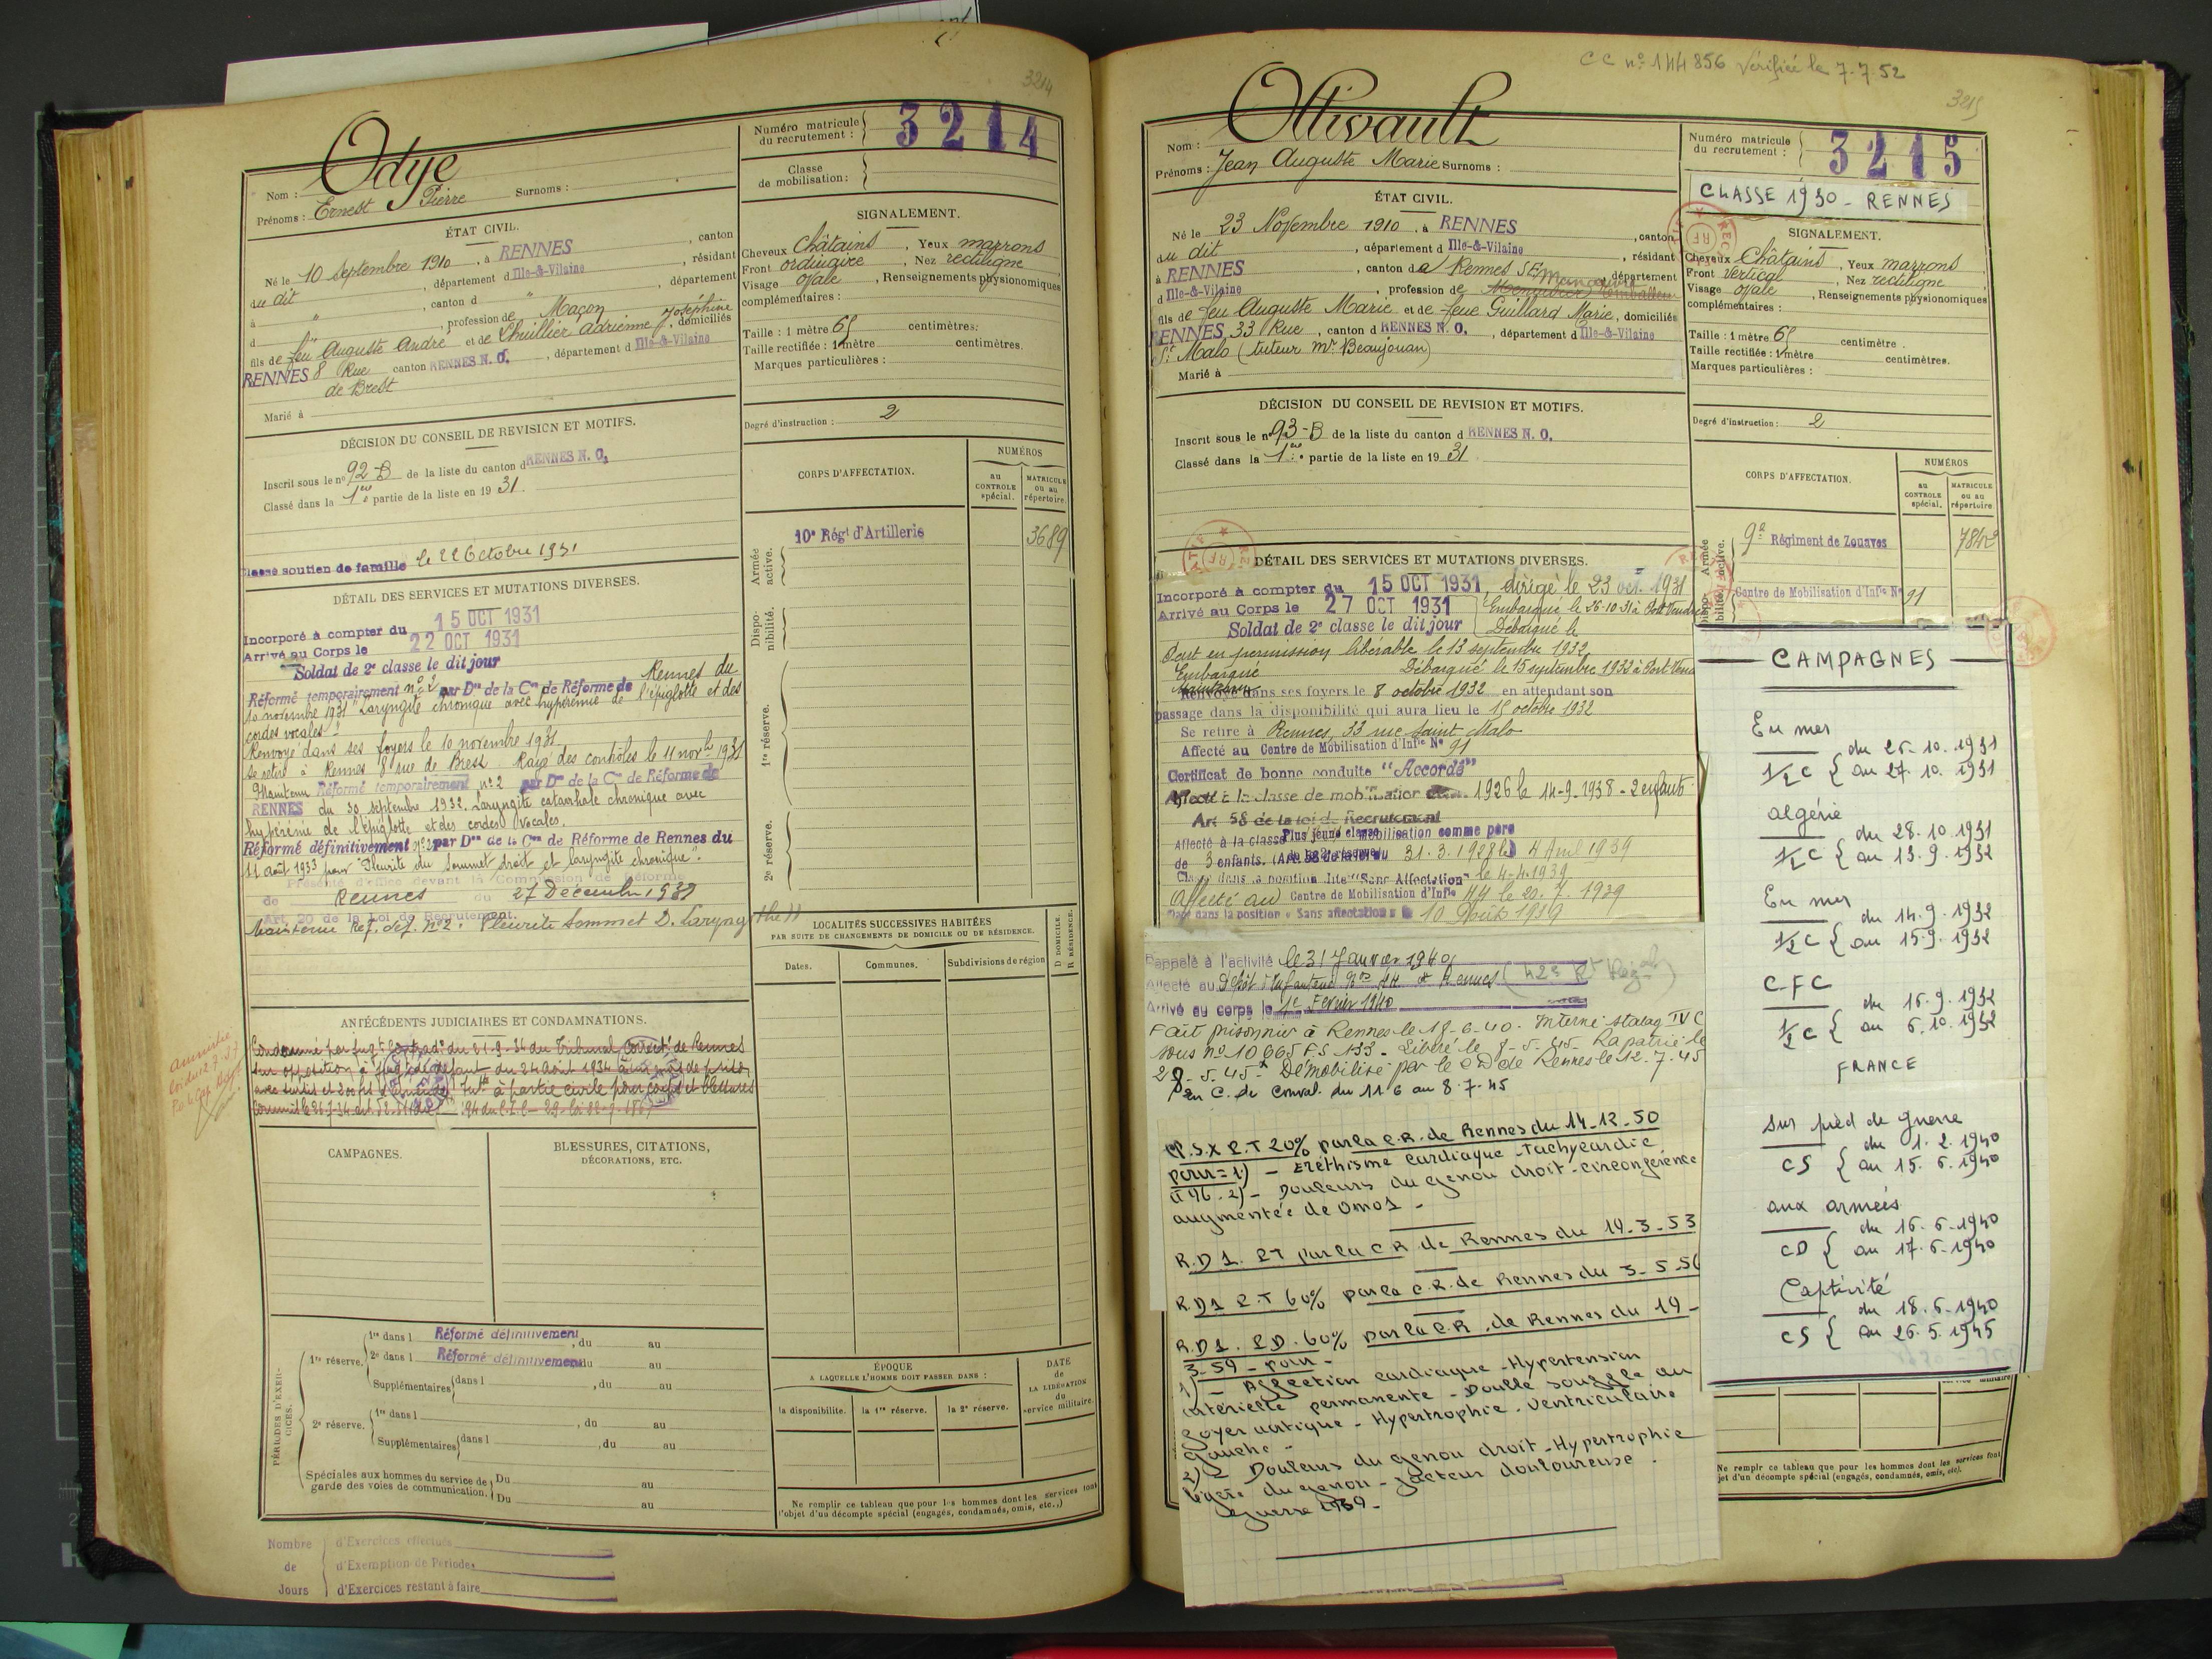 3214
Odye
Nom :
Prénoms : Ernest Pierre Surnoms :
Numéro matricule du recrutement : 3214
Classe de mobilisation :
ÉTAT CIVIL.
Né le 10 Septembre 1910, à RENNES, canton
du dit, département d Ille-&-Vilaine, résidant
à ", canton d ", département
d ", profession de Maçon
fils de feu Auguste André et de Lhuillier Adrienne Joséphine, domiciliés
RENNES 8 Rue canton RENNES N. O., département d Ille-&-Vilaine
de Brest
Marié à
SIGNALEMENT.
Cheveux Châtains, Yeux marrons
Front ordinaire, Nez rectiligne
Visage ovale, Renseignements physionomiques
complémentaires :
Taille : 1 mètre 65 centimètres.
Taille rectifiée : 1 mètre centimètres.
Marques particulières :
Degré d'instruction : 2
DÉCISION DU CONSEIL DE REVISION ET MOTIFS.
Inscrit sous le nº 92-B de la liste du canton d RENNES N. O.
Classé dans la 1ère partie de la liste en 19 31.
Classé soutien de famille le 22 Octobre 1931
CORPS D'AFFECTATION.
NUMÉROS
au CONTROLE spécial.
MATRICULE ou au répertoire
Armée active.
10e Régt d'Artillerie 3689
Dispo-nibilité.
1re réserve.
2e réserve.
DÉTAIL DES SERVICES ET MUTATIONS DIVERSES.
Incorporé à compter du 15 OCT 1931
Arrivé au Corps le 22 OCT 1931
Soldat de 2e classe le dit jour
Réformé temporairement nº 2 par Don de la Con de Réforme de Rennes du
10 novembre 1931 "Laryngite chronique avec hyperémie de l'épiglotte et des
cordes vocales"
Renvoyé dans ses foyers le 10 novembre 1931
Se retire à Rennes 8 rue de Brest. Rayé des contrôles le 11 novbre 1931
Maintenu Réformé temporairement nº 2 par Don de la Con de Réforme de
RENNES du 30 septembre 1932. Laryngite catarrhale chronique avec
hyperémie de l'épiglotte et des cordes vocales.
Réformé définitivement nº 2 par Don de la Con de Réforme de Rennes du
11 août 1933 pour "Pleurite du sommet droit et laryngite chronique".
Présenté d'office devant la Commission de Réforme
de Rennes du 27 Décembre 1939
Art. 20 de la Loi de Recrutement.
Maintenu Réf. déf. nº 2. Pleurite Sommet D. Laryngite
LOCALITÉS SUCCESSIVES HABITÉES
PAR SUITE DE CHANGEMENTS DE DOMICILE OU DE RÉSIDENCE.
Dates.
Communes.
Subdivisions de région
D DOMICILE. R RÉSIDENCE.
ANTÉCÉDENTS JUDICIAIRES ET CONDAMNATIONS.
Amnistie
Condamné par jugt contradre du 21-9-34 du Tribunal Correctl de Rennes
sur opposition à jugt de défaut du 24 août 1934
CAMPAGNES.
BLESSURES, CITATIONS, DÉCORATIONS, ETC.
PÉRIODES D'EXERCICES.
1re réserve. 1re dans l Réformé définitivement, du au
2e dans l Réformé définitivement du au
Supplémentaires dans l , du au
2e réserve. 1re dans l , du au
Supplémentaires dans l , du au
Spéciales aux hommes du service de garde des voies de communication. Du au
Du au
ÉPOQUE
A LAQUELLE L'HOMME DOIT PASSER DANS :
la disponibilité.
la 1re réserve.
la 2e réserve.
DATE de LA LIBÉRATION du service militaire.
Ne remplir ce tableau que pour les hommes dont les services font
l'objet d'un décompte spécial (engagés, condamnés, omis, etc.,)
Nombre de Jours
d'Exercices effectués
d'Exemption de Périodes
d'Exercices restant à faire
CC nº 144856 Vérifiée le 7.7.52
3215
Ollivault
Nom :
Prénoms : Jean Auguste Marie Surnoms :
Numéro matricule du recrutement : 3215
CLASSE 1930 - RENNES
ÉTAT CIVIL.
Né le 23 Novembre 1910, à RENNES, canton
du dit, département d Ille-&-Vilaine, résidant
à RENNES, canton de Rennes SE, département
d Ille-&-Vilaine, profession de
fils de feu Auguste Marie et de feue Guillard Marie, domiciliés
RENNES 33 Rue, canton d RENNES N. O., département d Ille-&-Vilaine
St Malo (tuteur Mr Beaujouan)
Marié à
SIGNALEMENT.
Cheveux Châtains, Yeux marrons
Front vertical, Nez rectiligne
Visage ovale, Renseignements physionomiques
complémentaires :
Taille : 1 mètre 65 centimètre.
Taille rectifiée : 1 mètre centimètres.
Marques particulières :
Degré d'instruction : 2
DÉCISION DU CONSEIL DE REVISION ET MOTIFS.
Inscrit sous le nº 93-B de la liste du canton d RENNES N. O.
Classé dans la 1ère partie de la liste en 19 31.
CORPS D'AFFECTATION.
NUMÉROS
au CONTROLE spécial.
MATRICULE ou au répertoire
Armée active.
9e Régiment de Zouaves 7842
Centre de Mobilisation d'Infie Nº 91
DÉTAIL DES SERVICES ET MUTATIONS DIVERSES.
Incorporé à compter du 15 OCT 1931, dirigé le 23 oct. 1931
Arrivé au Corps le 27 OCT 1931 Embarqué le 26-10-31 à Port Vendres
Soldat de 2e classe le dit jour Débarqué le
Part en permission libérable le 13 septembre 1932
Embarqué Débarqué le 15 septembre 1932 à Port Vend
Renvoyé dans ses foyers le 8 octobre 1932 en attendant son
passage dans la disponibilité qui aura lieu le 15 octobre 1932
Se retire à Rennes, 33 rue Saint Malo
Affecté au Centre de Mobilisation d'Infie Nº 91
Certificat de bonne conduite "Accordé"
Affecté à la classe de mobilisation 1926 le 14-9-1938 - 2 enfants
Art 58 de la loi de Recrutement
Affecté à la classe Plus jeune classe mobilisation comme père
de 3 enfants. (Art. 58 de la loi du 31.3.1928) le 4 Avril 1939
Classé dans la position dite "Sans Affectation" le 4-4-1939
Affecté au Centre de Mobilisation d'Infie 44 le 20.7.1939
Placé dans la position « Sans affectation » le 10 Août 1939
Rappelé à l'activité le 31 Janvier 1940
Affecté au Dépôt d'Infanterie Nos 44 à Rennes
Arrivé au corps le 1er Février 1940
Fait prisonnier à Rennes le 18-6-40. Interné stalag IV C
sous nº 10665 FS 133 - Libéré le 8-5-45. Rapatrié le
28.5.45. Démobilisé par le CD de Rennes le 12.7.45
en C. de Conval. du 11 6 au 8.7.45
P.S.X R.T 20% par la C.R. de Rennes du 14-12-50
pour = 1) - Eréthisme cardiaque - Tachycardie
à 96. 2) - Douleurs du genou droit - circonférence
augmentée de 0m01 -
R.D 1. RT par la C R de Rennes du 19-3-53
R.D1 R.T 60% par la C.R. de Rennes du 3-5-56
R.D1. P.D. 60% par la C.R. de Rennes du 19-
3-59 - pour -
1) - Affection cardiaque - Hypertension
artérielle permanente - Double souffle au
foyer aortique - Hypertrophie - Ventriculaire
gauche -
2) - Douleurs du genou droit - Hypertrophie
légère du genou - facteur douloureuse.
Guerre 1939 -
CAMPAGNES
En mer
1/2 C { du 26.10.1931
au 27.10.1931
Algérie
1/2 C { du 28.10.1931
au 13.9.1932
En mer
1/2 C { du 14.9.1932
au 15.9.1932
C F C
1/2 C { du 16.9.1932
au 6.10.1932
FRANCE
Sur pied de guerre
CS { du 1.2.1940
au 15.6.1940
aux armées
CD { du 16.6.1940
au 17.6.1940
Captivité
CS { du 18.6.1940
au 26.5.1945
Ne remplir ce tableau que pour les hommes dont les services font
jet d'un décompte spécial (engagés, condamnés, omis, etc).